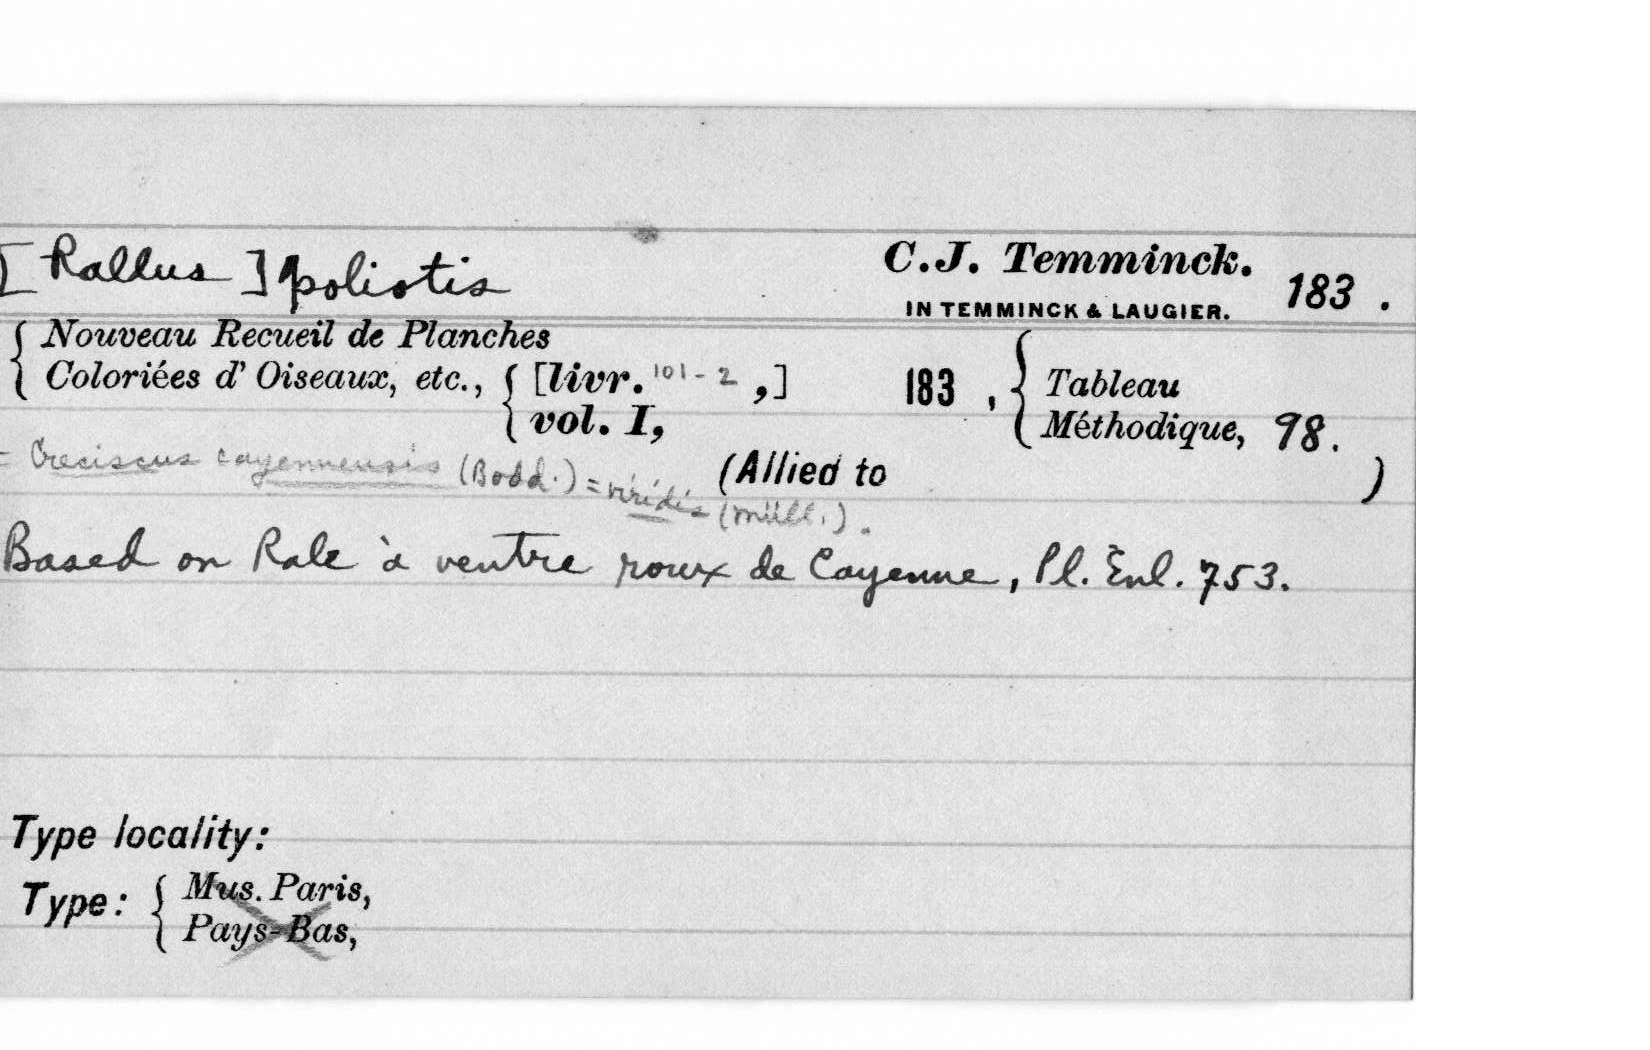 [ Rallus ] poliotis
C.J. Temminck.
IN TEMMINCK & LAUGIER.
183 .
{ Nouveau Recueil de Planches
Coloriées d' Oiseaux, etc., { [livr. 101-2 ,]
vol. I,
183 , { Tableau
Méthodique, 98.
= Creciscus cayennensis (Bodd.) = viridis (Müll.).
(Allied to )
Based on Rale à ventre roux de Cayenne, Pl. Enl. 753.
Type locality:
Type: { Mus. Paris,
Pays-Bas,